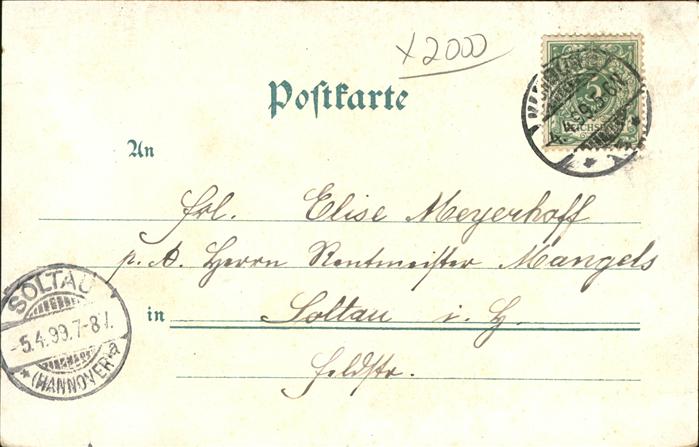 x 2000
Postkarte
An
Frl. Elise Meyerhoff
p. A. Herrn Rentmeister Mangels
in Soltau i. H.
Feldstr.
SOLTAU
5.4.99.7-8V.
*(HANNOVER)a
5
REICHSPOST